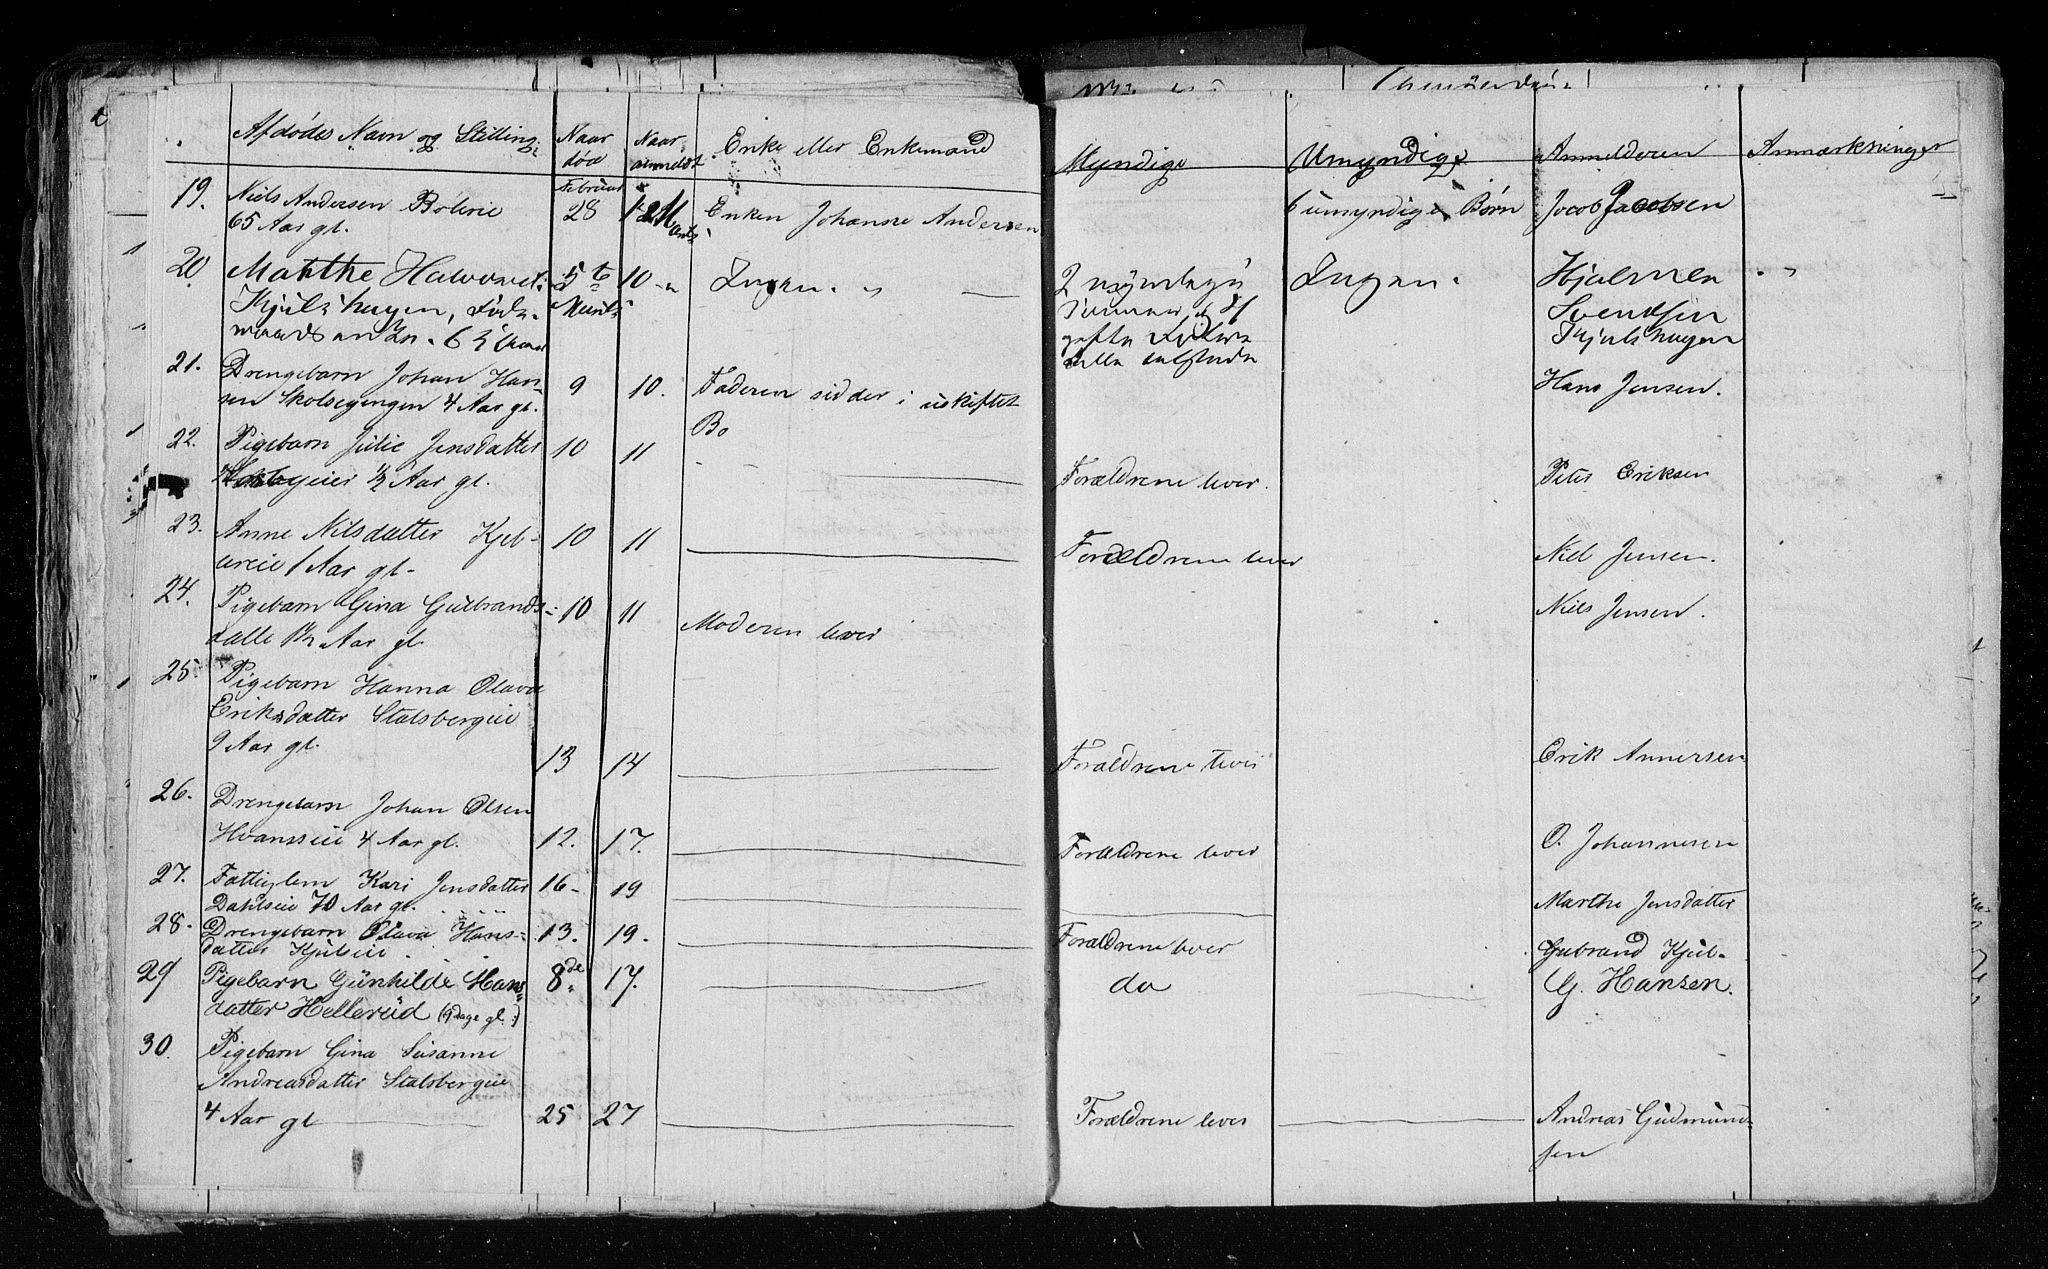 Afdødes Navn og Stilling Naar død Naar anmeldt Enke eller Enkemand Myndige Umyndige Anmelderen Anmærkninger
19. Niels Andersen Februar 28 Enken Johanne Andersen 6 umyndige Børn Jacob Jacobsen
65 Aar gl.
20 Mahthe 5te 10 Ingen 2 Ingen Hjalmer
Marts gifte Svendsen
alle
21. Drengebarn Johan Han- 9 10. Faderen sidder i uskiftet Hans Jensen.
sen 4 Aar gl. Bo
22. Pigebarn Julie Jensdatter 10 11 Forældrene lever. Peter Eriksen
1/2 Aar gl.
23. Anne Nilsdatter Kjel- 10 11 Forældrene lever Niel Jensen.
1 Aar gl.
24. Pigebarn Gina Gulbrands- 10 11 Moderen lever Niels Jensen.
1 1/2 Aar gl.
25. Pigebarn Hanna Olava
Eriksdatter Stalsbergeie
9 Aar gl. 13 14 Forældrene lever Erik Annersen
26. Drengebarn Johan Olsen
4 Aar gl. 12. 17. Forældrene lever O. Johannesen
27. Fattiglem Kari Jensdatter 16 19 Marthe Jensdatter
Dahlseie 70 Aar gl.
28. Drengebarn Olava Hans- 13. 19. Forældrene lever Gubrand Kjul-
datter Kjulseie
29 Pigebarn Günhilde Hans- 8de 17. do G. Hansen.
datter Hellerüd (9 Dage gl.)
30. Pigebarn Gina Susanne
Andreasdatter Stalsbergeie
4 Aar gl 25 27 Forældrene lever Andreas Gudmund-
sen